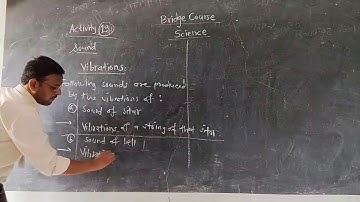 Bridge Course
Science
Activity 19
Sound
Vibrations:
Following sounds are produced
by the vibrations of :
a Sound of sitar
→ Vibrations of a string of that sitar
b Sound of bell
→ Vibra